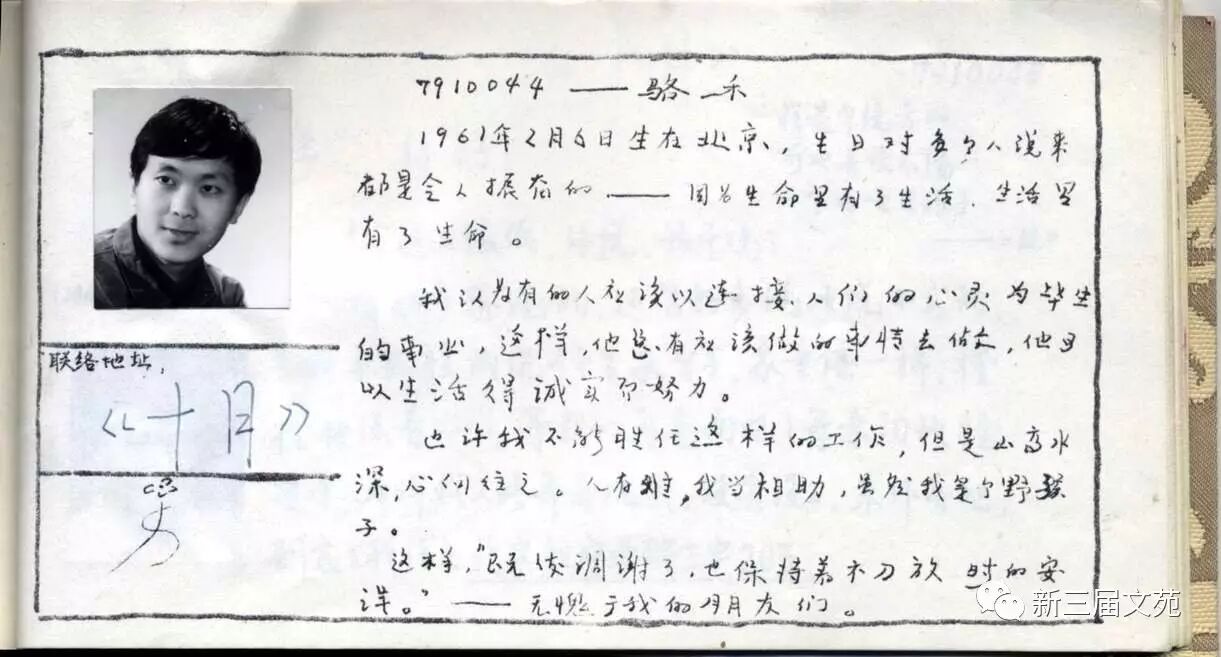 7910044 —— 骆一禾
1961年2月6日生在北京，生日对多少人说来
都是令人振奋的 —— 因为生命里有了生活，生活里
有了生命。
我认为有的人应该以连接人们的心灵为毕生
的事业，这样，他总有应该做的事情去做，他可
以生活得诚实而努力。
也许我不能胜任这样的工作，但是山高水
深，心向往之。人有难，我当相助，虽然我是个野孩
子。
这样，“既使凋谢了，也保持着木刀放 时的安
详。” —— 无愧于我的朋友们。
联络地址，
《十月》
新三届文苑